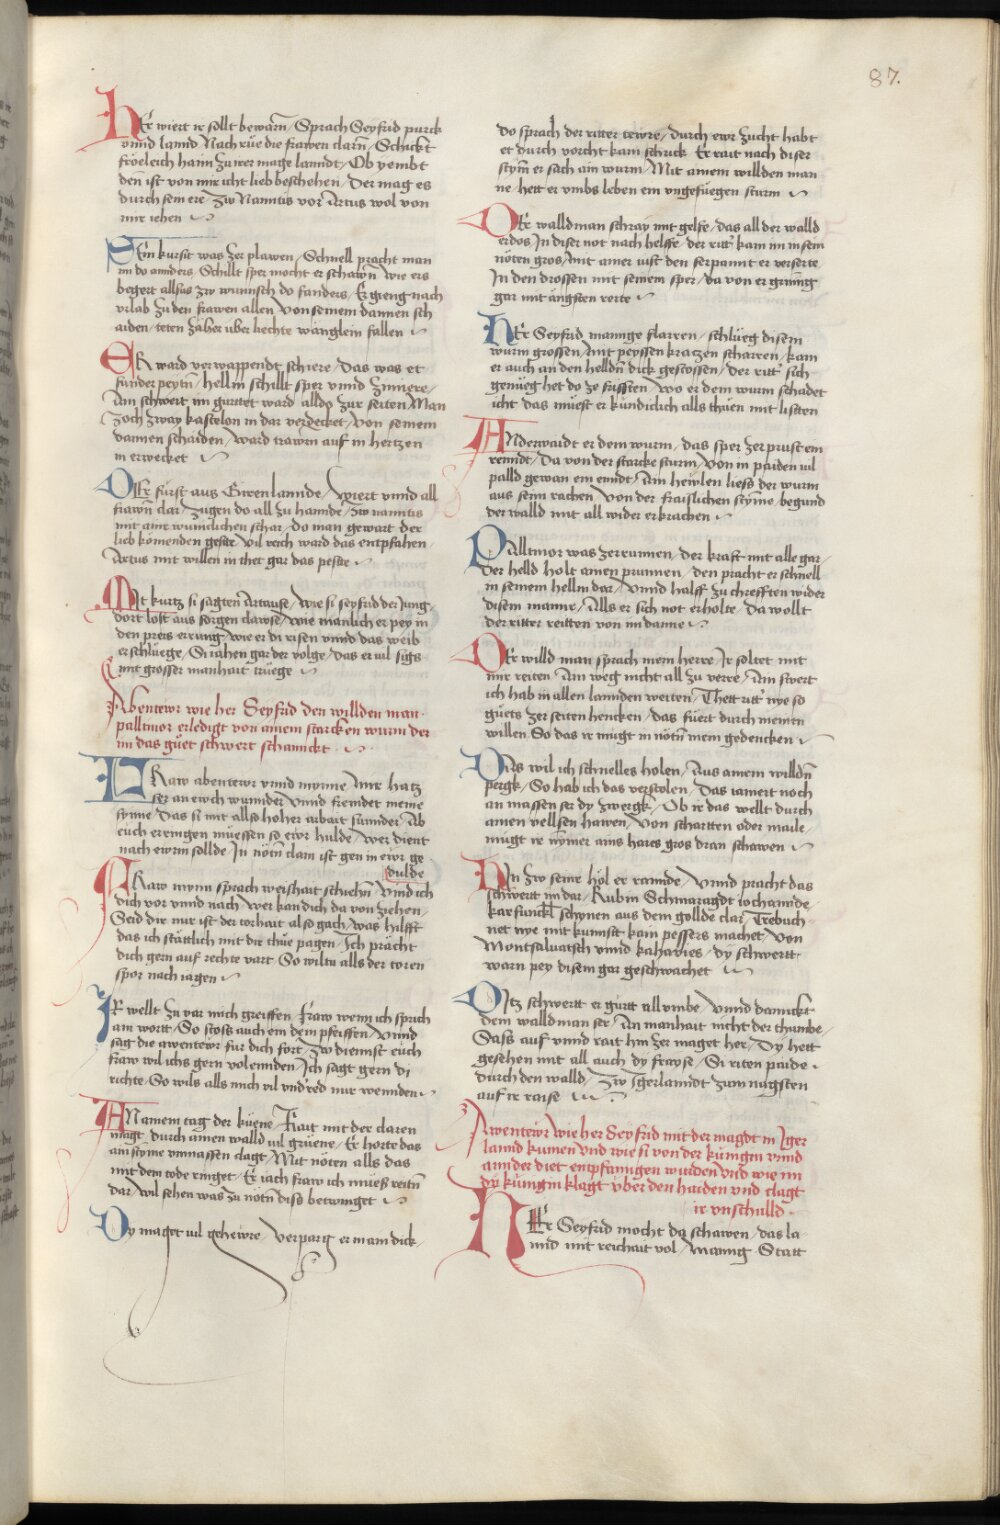 87.
HEr wiert ir sollt bewarn / Sprach Seyfrid purck
vnnd lannd Nach rüe die frawen clarn / Schickt
fröeleich haim zu irer mage lanndt / Ob yembt
den ist von mir icht lieb beschehen / Der mag es
durch sein ere / Zw Nanntis vor Artus wol von
mir iehen
SEin kursit was zer plawen / Schnell pracht man
im do annders / Schillt sper mocht er schawn / wie ers
begert allsus zw wunnsch do fanders / Er gieng nach
vrlab zu den frawen allen / Von seinem dannen sch
aiden / teten zäher uber liechte wänglein fallen
ER ward verwappendt schiere / Das was et
sunder peytn / hellm schillt sper vnnd zimiere /
Am schwert im gurttet ward alldo zur seiten / Man
zoch zway kastelon in dar verdecket / Von seinem
dannen schaiden / ward trawrn auf in hertzen
in erwecket
DEr fürst aus Ewenlannde / Wiert vnnd all
frawn clar / Zugen do all zu hannde / Zw nanntis
mit ainr wunnclichen schar / do man gewart der
lieb komenden geste / Vil reich ward das entpfahen /
Artus mit willen in thet gar das peste
MIt kurtz si sagten Artause / Wie si seyfrid der Jung /
dort lost aus sorgen clawse / Wie manlich er pey in
den preis errung / Wie er di risen vnnd das weib
erschlüege / Si iahen gar der volge / Das er vil sigs
mit grosser manhait trüege
Abentewr wie her Seyfrid den willden man
palltinor erledigt von ainem starcken wurm der
im das güet schwert schannckt
FRaw abentewr vnnd mynne / Awr hatz
ser an ewch wunnder / Vnnd frömder meine
synne / Das si mit allso hoher arbait sunnder / Ab
euch erringen müessen so ewr hulde / Wer dient
nach ewrm sollde / In nötn clam ist gen in ewr ge
dulde
FRaw mynn sprach weishait schiehn / Vnnd ich
dich vor vnnd nach / Wer kan dich da von ziehen /
Seid dir nur ist der torhait also gach / Was hilfft
das ich stättlich mit dir thue pagen / Ich pracht
dich gern auf rechte vart / So wiltu alls der toren
spor nach iagen
IR wellt zu var mich greiffen / Fraw wenn ich sprich
ain wortt / So stoss auch ein dem pfeiffen / Vnnd
sag die awentewr für dich fort / Zw diennst euch
fraw wil ichs gern volennden / Ich sagt gern di
richte / So wils alls mich vil vnd'red nur wennden
AN ainem tag der küene / Rait mit der claren
magt / durch ainen walld vil grüene / Er horte das
ain styme vnmassen clagt / Mit nöten alls das
mit dem tode ringet / Er iach fraw ich müess reitn
dar / Wil sehen was zu nötn diso betwinget
DY maget vil gehewre / Verparg er in ain dick
do sprach der ritter tewre / durch ewr zucht habt
et durch vorcht kain schrick / Er rait nach diser
stym̄ er sach ain wurm / Mit ainem willden man
ne / hett er vmbs leben ein vngefüegen sturm
DEr walldman schray mit gelfe / das all der walld
erdos / In diser not nach helffe / der ritt' kam im in sein
nöten gros / Mit ainer iust den serpannt er verserte
In den drossen mit seinem sper / Da von er grimig
gar mit ängsten rerte
HEr Seyfrid manige flarren / schlueg disem
wurm grossen / Mit peyssen kratzen scharren / kam
er auch an den helldn dick gestossen / der ritt' sich
genüeg het do ze fristten / Wo er dem wurm schadet
icht / das müest er kündicklich alls thuen mit listten
ANderwaidt er dem wurm / das sper zer prust ein
renndt / Da von der starcke sturm / Von in paiden vil
palld gewan ein enndt / Ain hewlen liess der wurm
aus seim rachen / Von der fraislichen styme / begund
der walld mit all wider erkrachen
PAlltinor was zerrunnen / der kraft mit alle gar /
Der helld holt ainen prunnen / den pracht er schnell
in seinem hellm dar / Vnnd halff zu chrefften wider
disem manne / Alls er sich not erholte / Da wollt
der ritter reitten von im danne
DEr willd man sprach mein herre / Ir soltet mit
mir reiten / Ain weg nicht all zu verre / Ain swert
ich hab in allen lannden weitten / Thett ritt' nye so
güets zer seiten hencken / das füert durch meinen
willen / So das ir mügt in nötn mein gedencken
DAs wil ich schnelles holen / Aus ainem willdn
pergk / So hab ich das verstolen / Das iamert noch
an massen ser dy zwergk / Ob ir das wellt durch
ainen vellsen hawen / Von schartten oder maile
mügt ir nymer ains hares gros dran schawen
HIn zw seinr hol er rannde / Vnnd pracht das
schwertt im dar / Rubin Schmaragdt iochannde /
karfunckl schynen aus dem gollde clar / Trebuch
net nye mit kunnst kain pessers machet / Von
Montsaluatsch vnnd kahavies / dy schwertt
warn pey disem gar geschwachet
DItz schwertt er gürtt all vmbe / Vnnd dannckt
dem walldman ser / An manhait nicht der thumbe /
Sass auf vnnd rait hin zer maget her / Dy hett
gesehen mit all auch dy frayse / Si riten paide
durch den walld / Zw Igerlanndt zum nagsten
auf ir raise
Awentewr wie her Seyfrid mit der magdt in Iger
lannd kumen vnd wie si von der künigin vnnd
annder diet entpfanngen wurden vnd wie im
dy künigin klagt vber den haiden vnd clagt
ir vnschulld
HEr Seyfrid mocht da schawen / das la
nnd mit reichait vol / Manig Statt